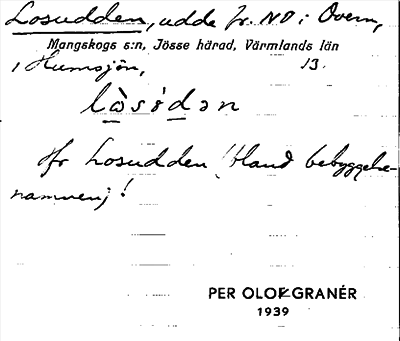 Losudden, udde fr. NO i Överu,
Mangskogs s:n, Jösse härad, Värmlands län
i Humsjön, 13.
lò̲sú̲dən
Jfr Losudden (bland bebyggelse-
namnen)!
PER OLOF GRANÉR
1939